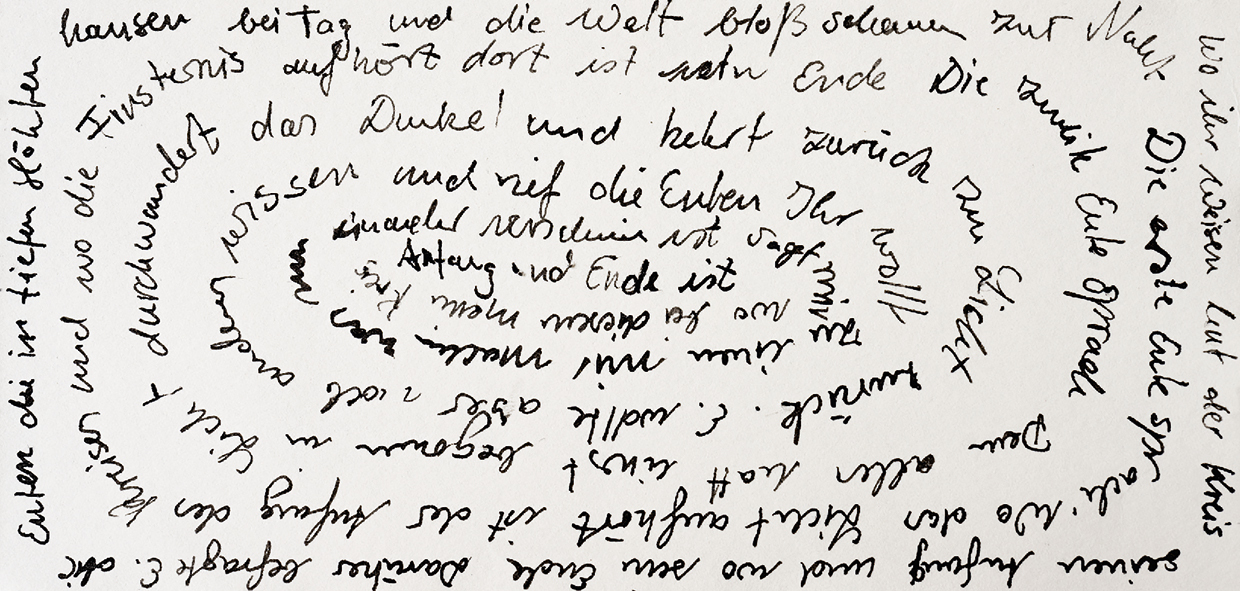 Wo ihr Weisen laut der Kreis
seinen Anfang und wo sein Ende Darüber befragte E. die
Eulen die in tiefen Höhlen
hausen bei Tag und die Welt bloß schauen zur Nacht
Die erste Eule sprach: Wo das Licht aufhört ist der Anfang des
Kreises und wo die Finsternis aufhört dort ist sein Ende Die zweite Eule sprach
Denn alles hatt einst begonnen im Licht
durchwandert das Dunkel und kehrt zurück zum Licht
zurück. E. wollte aber noch
andern wissen und rief die Eulen Ihr wollt
zu einen mir machen was
nun einander verschieden ist sagt mir
wo bei diesem mein Kreis
Anfang und Ende ist